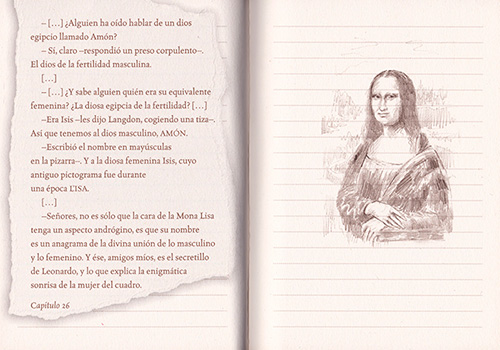 – […] ¿Alguien ha oído hablar de un dios
egipcio llamado Amón?
– Sí, claro –respondió un preso corpulento–.
El dios de la fertilidad masculina.
[…]
– […] ¿Y sabe alguien quién era su equivalente
femenina? ¿La diosa egipcia de la fertilidad? […]
–Era Isis –les dijo Langdon, cogiendo una tiza–.
Así que tenemos al dios masculino, AMÓN.
–Escribió el nombre en mayúsculas
en la pizarra–. Y a la diosa femenina Isis, cuyo
antiguo pictograma fue durante
una época L'ISA.
[…]
–Señores, no es sólo que la cara de la Mona Lisa
tenga un aspecto andrógino, es que su nombre
es un anagrama de la divina unión de lo masculino
y lo femenino. Y ése, amigos míos, es el secretillo
de Leonardo, y lo que explica la enigmática
sonrisa de la mujer del cuadro.
Capítulo 26